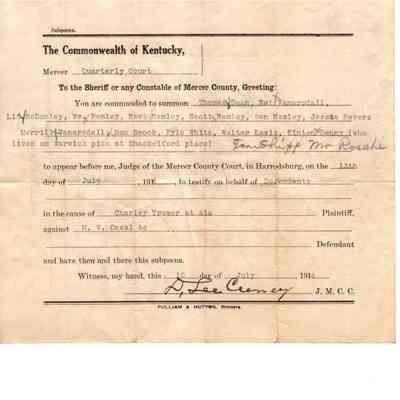 Subpœna.
The Commonwealth of Kentucky,
Mercer Quarterly Court
To the Sheriff or any Constable of Mercer County, Greeting:
You are commanded to summon Thomas Dean, Nat Vanarsdall,
McDonley, Wm Hemley, Hemley, Scott Hemley, Ben Hemley, Jessie Rovers
Merrill Vanarsdall, Don Smock, Kyle White, Walter Lewis, Kinton Denny (who
lives on Warwick pike at Shackelford place) Mr
to appear before me, Judge of the Mercer County Court, in Harrodsburg, on the 13th
day of July, 191, to testify on behalf of Defendants
in the cause of Charley Trower et als Plaintiff,
against H. V. &c
Defendant
and have then and there this subpœna.
Witness, my hand, this 10 day of July, 1914
D, Lee J. M. C. C.
PULLIAM & HUTTON, Printers.